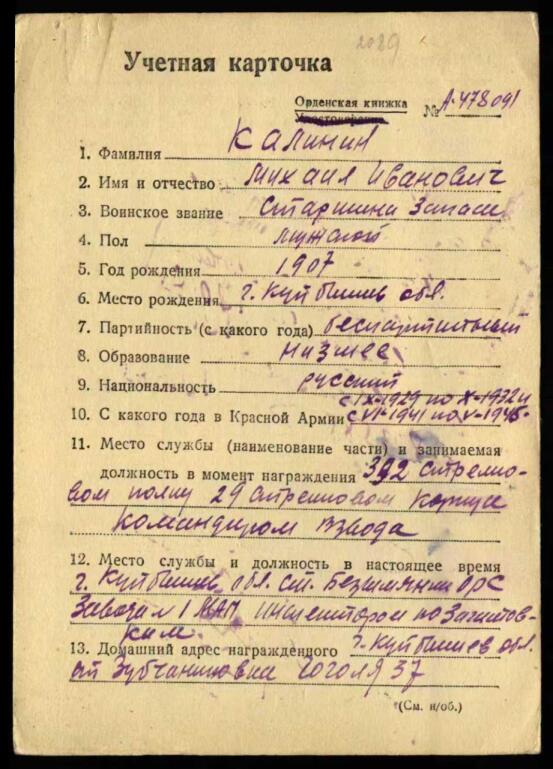 2089
Учетная карточка
Орденская книжка
Удостоверение № А-478091
1. Фамилия Калинин
2. Имя и отчество Михаил Иванович
3. Воинское звание Старшина Запаса
4. Пол мужской
5. Год рождения 1907
6. Место рождения г. Куйбышев обл.
7. Партийность (с какого года) беспартийный
8. Образование низшее
9. Национальность русский
с IX-1929 по X-1932 и
10. С какого года в Красной Армии с VI-1941 по V-1945.
11. Место службы (наименование части) и занимаемая
должность в момент награждения 392 стрелко-
вом полку 29 стрелковом корпусе
командиром взвода
12. Место службы и должность в настоящее время
г. Куйбышев обл. ст. Безымянки ОРС
Завода 1 МАП
ким.
13. Домашний адрес награжденного г. Куйбышев обл.
ст Зубчаниновка Гоголя 37
(См. н/об.)